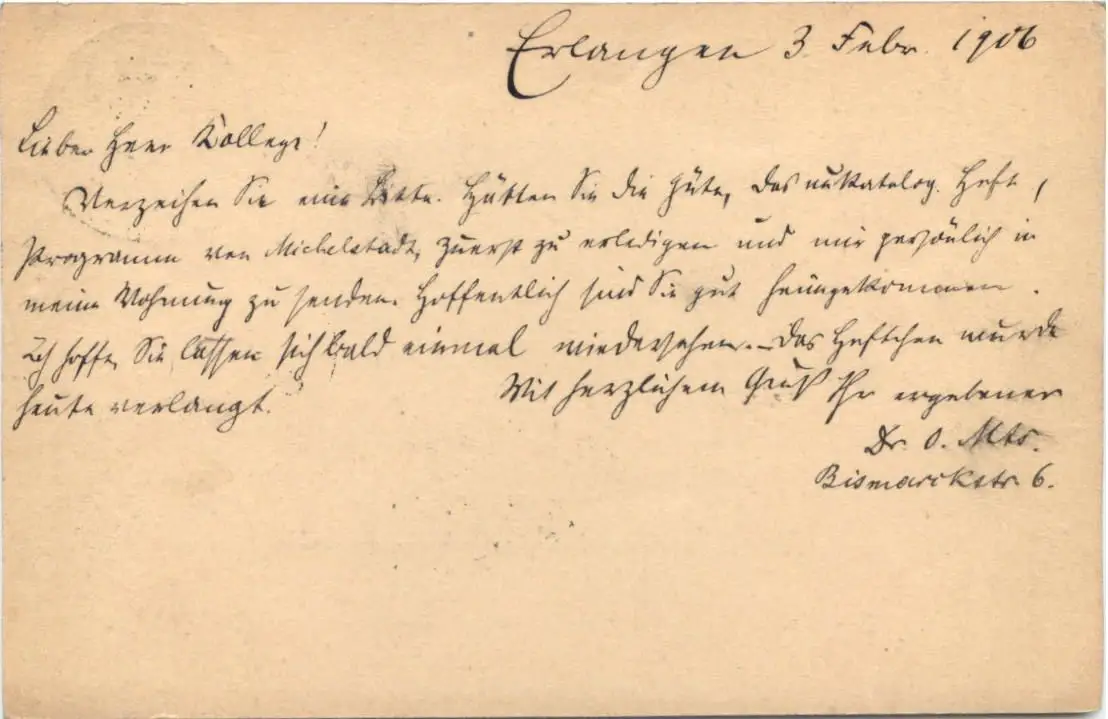 Erlangen 3. Febr. 1906
Lieber Herr Kollege!
Verzeihen Sie eine Bitte. Hätten Sie die Güte, das Heft,
Programm von Michelstadt, zuerst zu erledigen und mir persönlich in
meine Wohnung zu senden. Hoffentlich sind Sie gut heimgekommen.
Ich hoffe, Sie lassen sich bald einmal wiedersehen. – Das Heftchen wurde
heute verlangt.
Mit herzlichem Gruß Ihr ergebener
Dr. O.
Bismarckstr. 6.